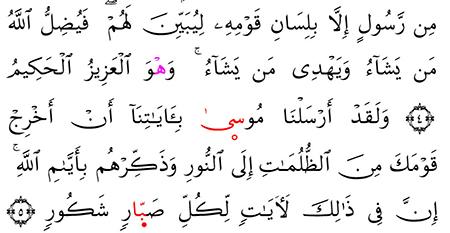 مِن رَّسُولٍ إِلَّا بِلِسَانِ قَوْمِهِۦ لِيُبَيِّنَ لَهُمْ ۖ فَيُضِلُّ ٱللَّهُ
مَن يَشَآءُ وَيَهْدِى مَن يَشَآءُ ۚ وَهْوَ ٱلْعَزِيزُ ٱلْحَكِيمُ
﴿٤﴾ وَلَقَدْ أَرْسَلْنَا مُوسٜىٰ بِـَٔايَـٰتِنَآ أَنْ أَخْرِجْ
قَوْمَكَ مِنَ ٱلظُّلُمَـٰتِ إِلَى ٱلنُّورِ وَذَكِّرْهُم بِأَيَّىٰمِ ٱللَّهِ ۚ
إِنَّ فِى ذَٰلِكَ لَـَٔايَـٰتٍ لِّكُلِّ صَبّ۪ارٍ شَكُورٍ ﴿٥﴾